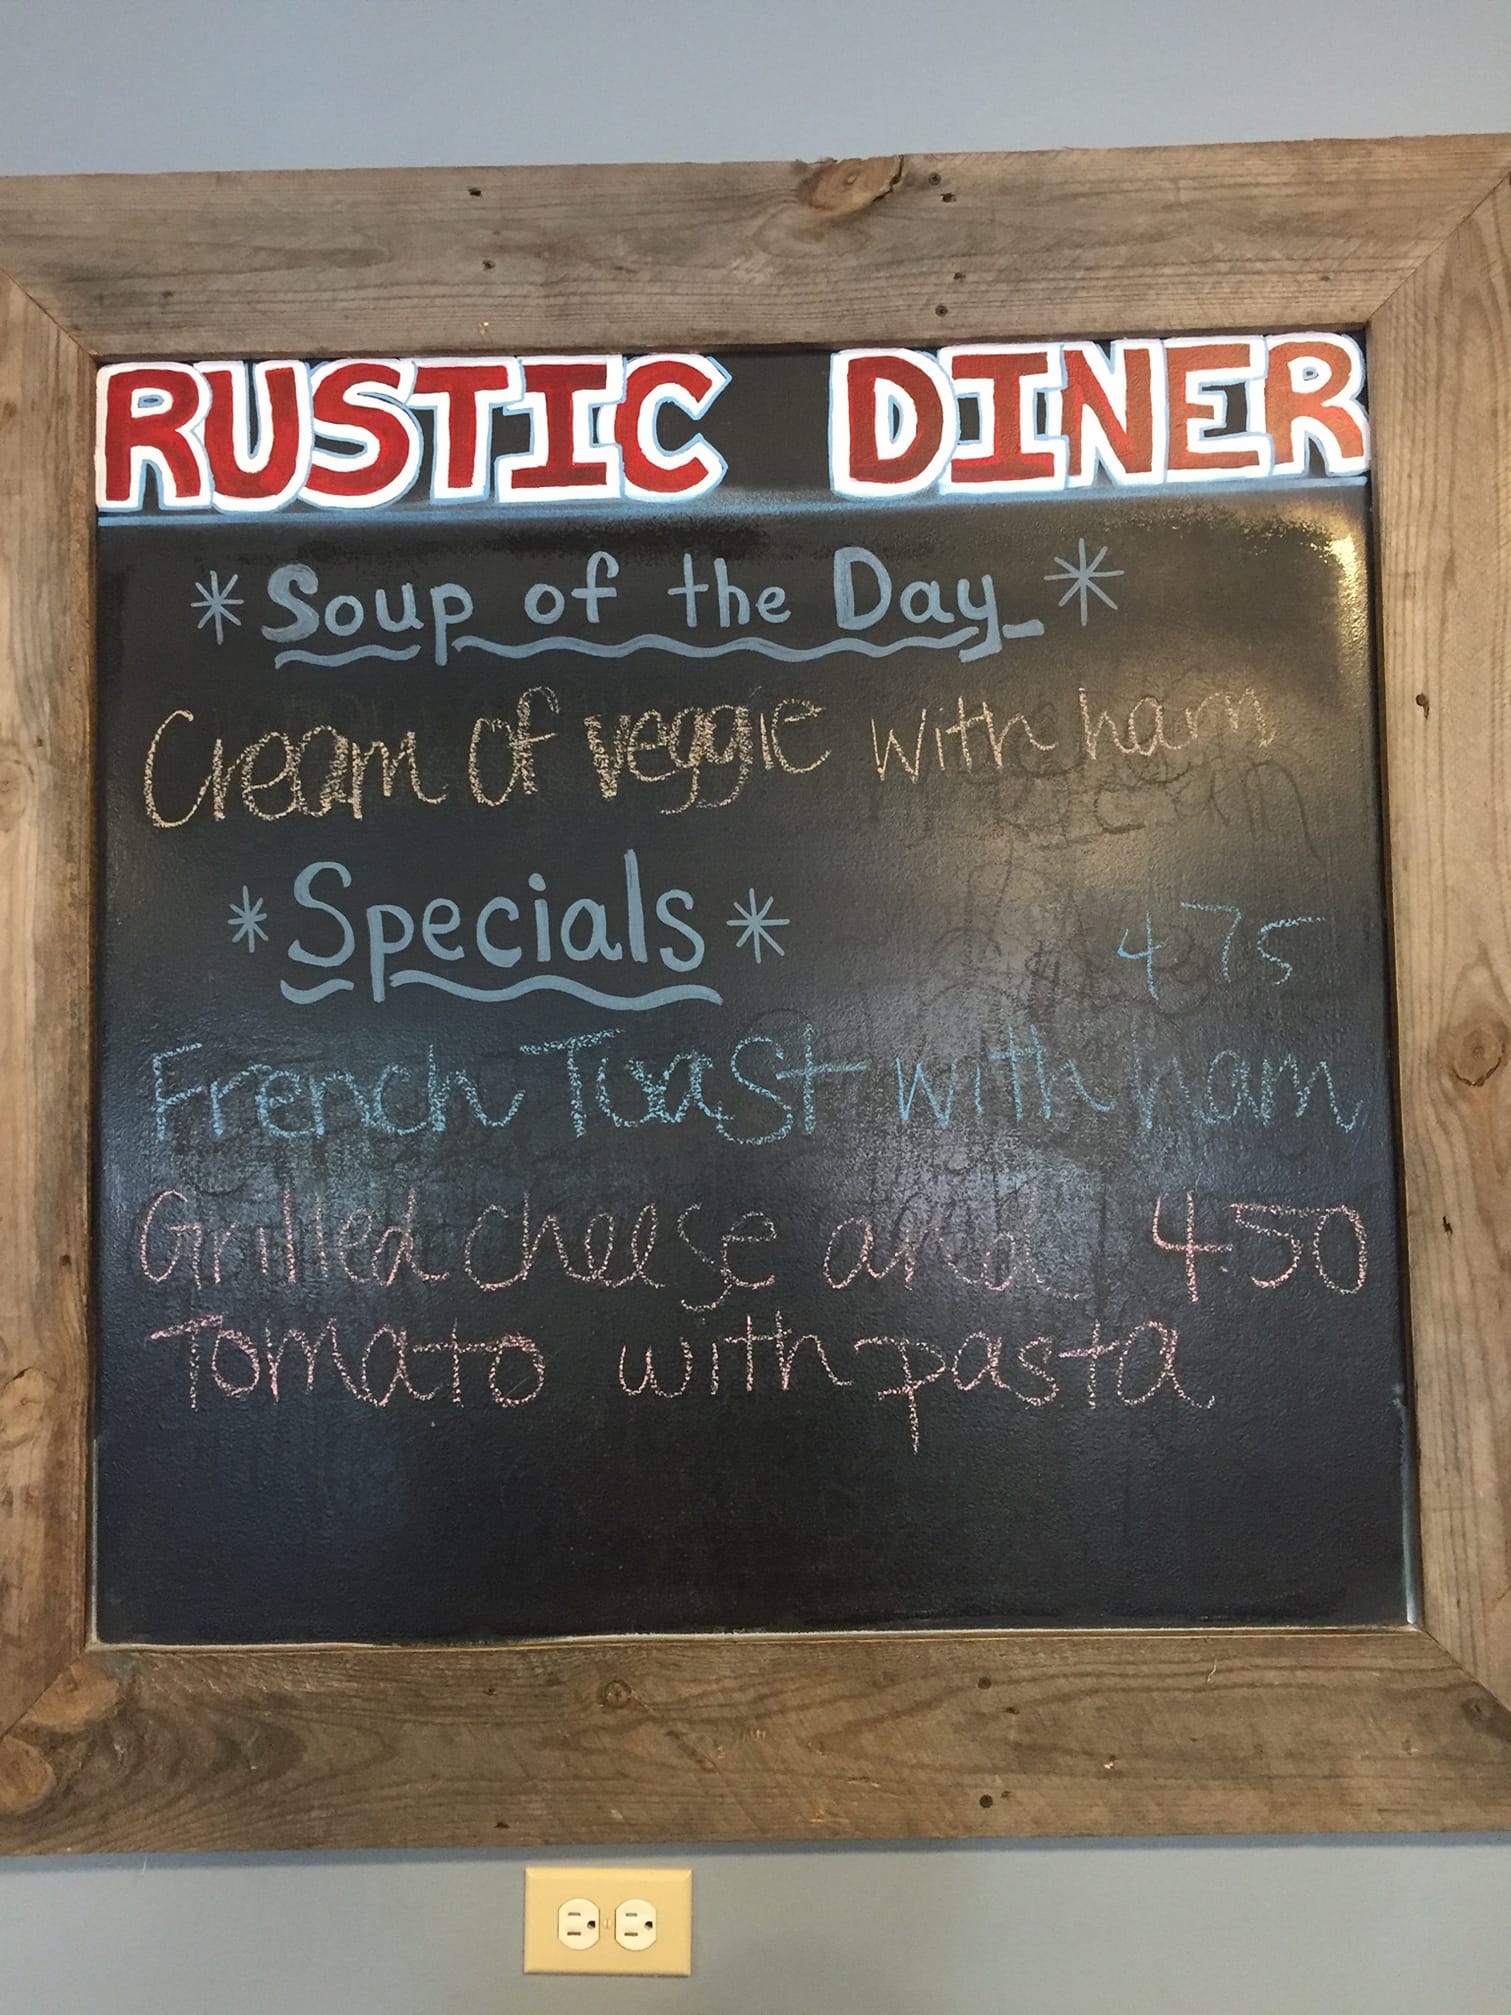 RUSTIC DINER
*Soup of the Day*
Cream of veggie with ham
*Specials*
4.75
French Toast with ham
Grilled cheese and 4.50
Tomato with pasta